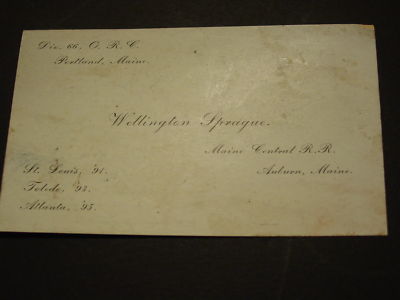 Div. 66, O. R. C.
Portland, Maine.
Wellington Sprague.
Maine Central R. R.
Auburn, Maine.
St. Louis, '91.
Toledo, '93.
Atlanta, '95.